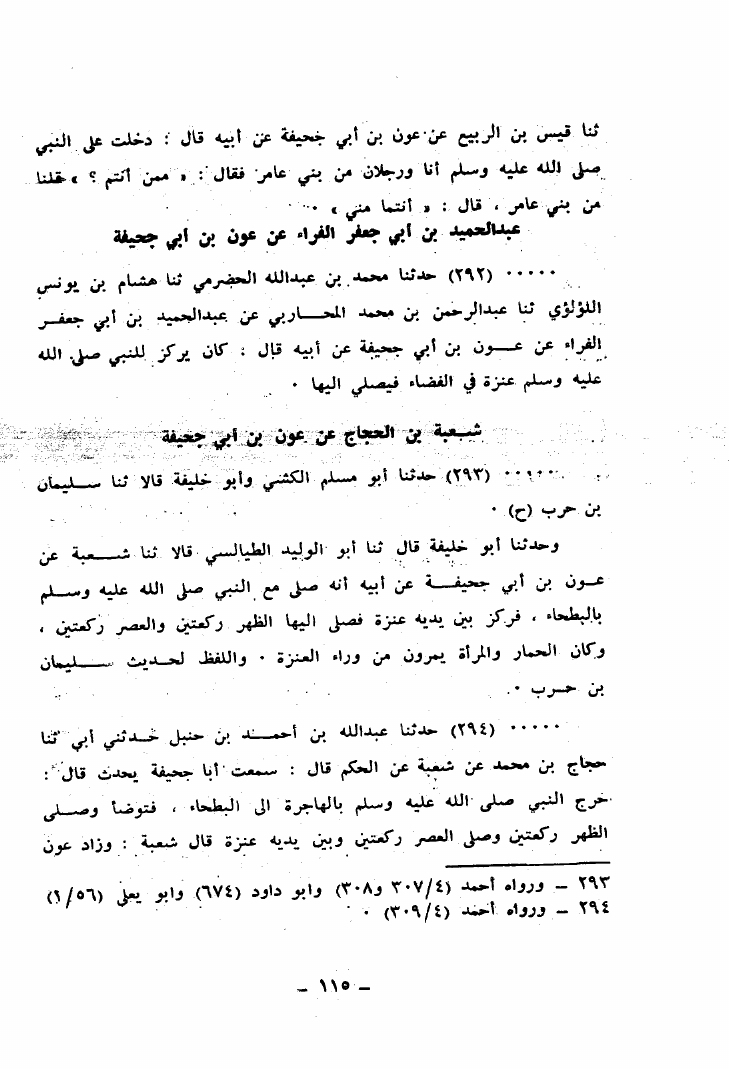 ثنا قيس بن الربيع عن عون بن أبي جحيفة عن أبيه قال : دخلت على النبي
صلى الله عليه وسلم أنا ورجلان من بني عامر فقال : « ممن أنتم ؟ » قلنا
من بني عامر ، قال : « أنتما مني » ٠
عبدالحميد بن أبي جعفر الفراء عن عون بن أبي جحيفة
٠٠٠٠٠ (٢٩٢) حدثنا محمد بن عبدالله الحضرمي ثنا هشام بن يونس
اللؤلؤي ثنا عبدالرحمن بن محمد المحاربي عن عبدالحميد بن أبي جعفر
الفراء عن عون بن أبي جحيفة عن أبيه قال : كان يركز للنبي صلى الله
عليه وسلم عنزة في الفضاء فيصلي اليها ٠
شعبة بن الحجاج عن عون بن أبي جحيفة
٠٠٠٠٠ (٢٩٣) حدثنا أبو مسلم الكشي وأبو خليفة قالا ثنا سليمان
بن حرب (ح) ٠
وحدثنا أبو خليفة قال ثنا أبو الوليد الطيالسي قالا ثنا شعبة عن
عون بن أبي جحيفة عن أبيه أنه صلى مع النبي صلى الله عليه وسلم
بالبطحاء ، فركز بين يديه عنزة فصلى اليها الظهر ركعتين والعصر ركعتين ،
وكان الحمار والمرأة يمرون من وراء العنزة ٠ واللفظ لحديث سليمان
بن حرب ٠
٠٠٠٠٠ (٢٩٤) حدثنا عبدالله بن أحمد بن حنبل حدثني أبي ثنا
حجاج بن محمد عن شعبة عن الحكم قال : سمعت أبا جحيفة يحدث قال :
خرج النبي صلى الله عليه وسلم بالهاجرة الى البطحاء ، فتوضأ وصلى
الظهر ركعتين وصلى العصر ركعتين وبين يديه عنزة قال شعبة : وزاد عون
٢٩٣ – ورواه أحمد (٣٠٧/٤ و٣٠٨) وابو داود (٦٧٤) وابو يعلى (١/٥٦)
٢٩٤ – ورواه أحمد (٣٠٩/٤) ٠
– ١١٥ –